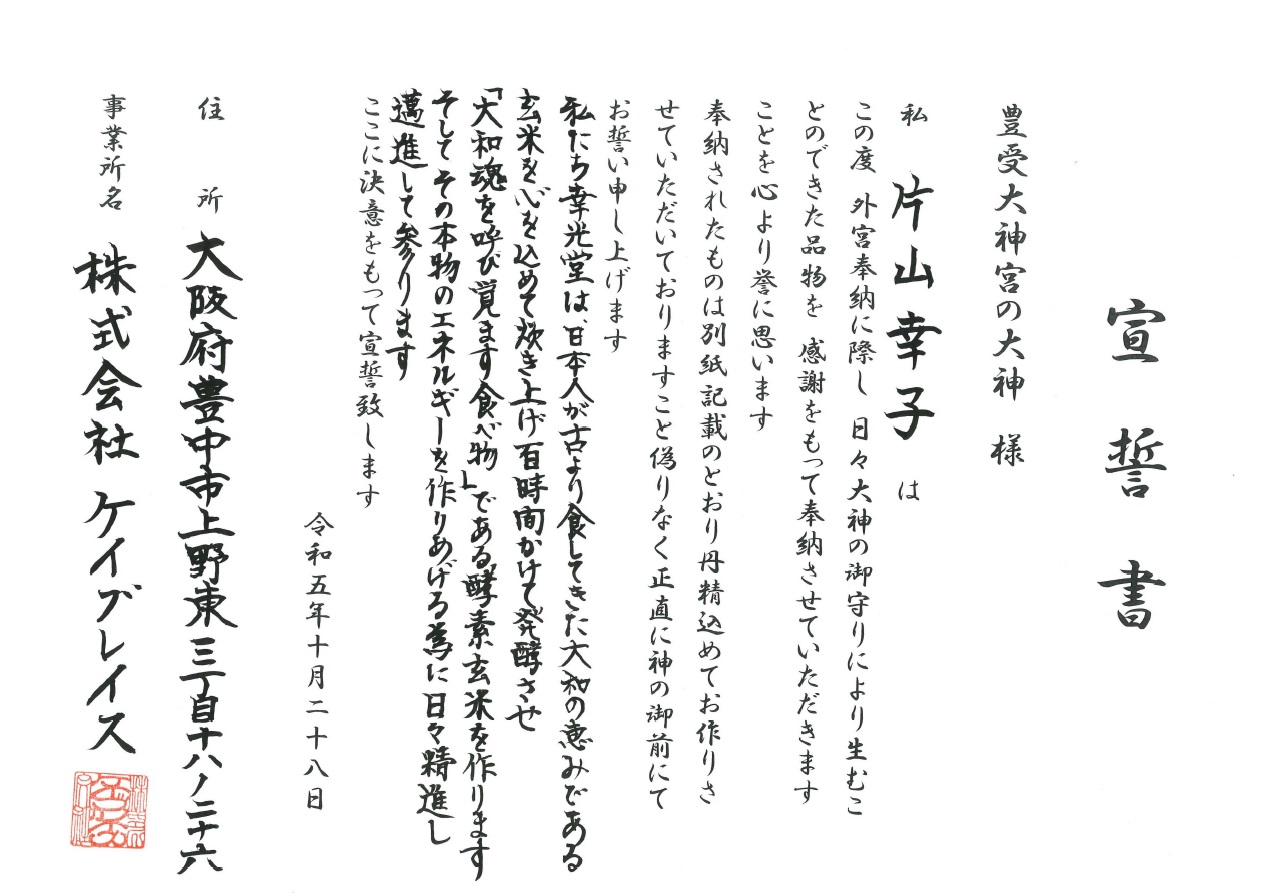 宣誓書
豊受大神宮の大神 様
私 片山幸子 は
この度 外宮奉納に際し 日々大神の御守りにより生むこ
とのできた品物を 感謝をもって奉納させていただきます
ことを心より誉に思います
奉納されたものは別紙記載のとおり丹精込めてお作りさ
せていただいておりますこと偽りなく正直に神の御前にて
お誓い申し上げます
私たち幸光堂は、日本人が古より食してきた大和の恵みである
玄米を心を込めて炊き上げ百時間かけて発酵させ
「大和魂を呼び覚ます食べ物」である酵素玄米を作ります
そして その本物のエネルギーを作りあげる為に日々精進し
邁進して参ります
ここに決意をもって宣誓致します
令和五年十月二十八日
住所 大阪府豊中市上野東三丁目十八ノ二十六
事業所名 株式会社 ケイプレイス